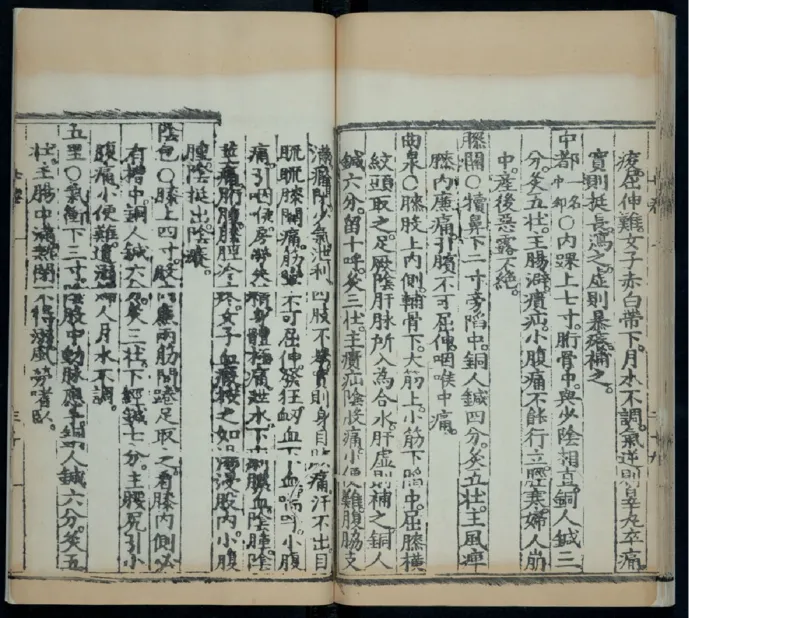 痿屈伸難女子赤白帶下月水不調氣逆則睾丸卒痛
實則挺長瀉之虛則暴癢補之
中都一名中郄〇內踝上七寸䯒骨中與少陰相直銅人鍼三
分灸五壯主腸澼㿗疝小腹痛不能行立脛寒婦人崩
中產後惡露不絕
膝關〇犢鼻下二寸旁陷中銅人鍼四分灸五壯主風痺
膝內廉痛引臏不可屈伸咽喉中痛
曲泉〇膝股上內側輔骨下大筋上小筋下陷中屈膝橫
紋頭取之足厥陰肝脉所入為合水肝虛則補之銅人
鍼六分留十呼灸三壯主㿗疝陰股痛小便難腹脇支
滿癃閉少氣泄利四肢不擧實則身目眩痛汗不出目
䀮䀮膝關痛筋攣不可屈伸發狂衂血下血喘呼小腹
痛引咽喉房勞失精身體極痛泄水下痢膿血陰腫陰
莖痛䯒腫膝脛冷疼女子血瘕按之如湯浸股內小腹
腫陰挺出陰癢
陰包〇膝上四寸股內廉兩筋間踡足取之看膝內側必
有槽中銅人鍼六分灸三壯下經鍼七分主腰尻引小
腹痛小便難遺溺婦人月水不調
五里〇氣衝下三寸陰股中動脉應手銅人鍼六分灸五
壯主腸中滿熱閉不得溺風勞嗜臥